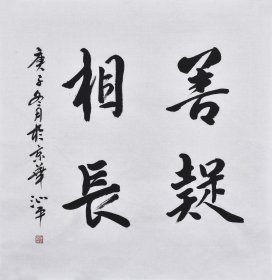 善疑
相長
庚子冬月於京華沁平